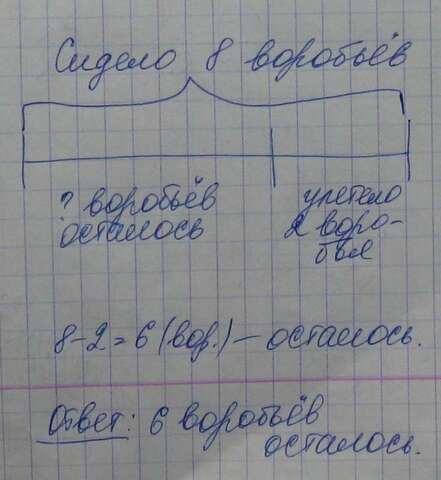 Сидело 8 воробьёв
? воробьёв
осталось
улетело
2 воро-
бья
8-2=6 (вор.) - осталось.
Ответ: 6 воробьёв
осталось.